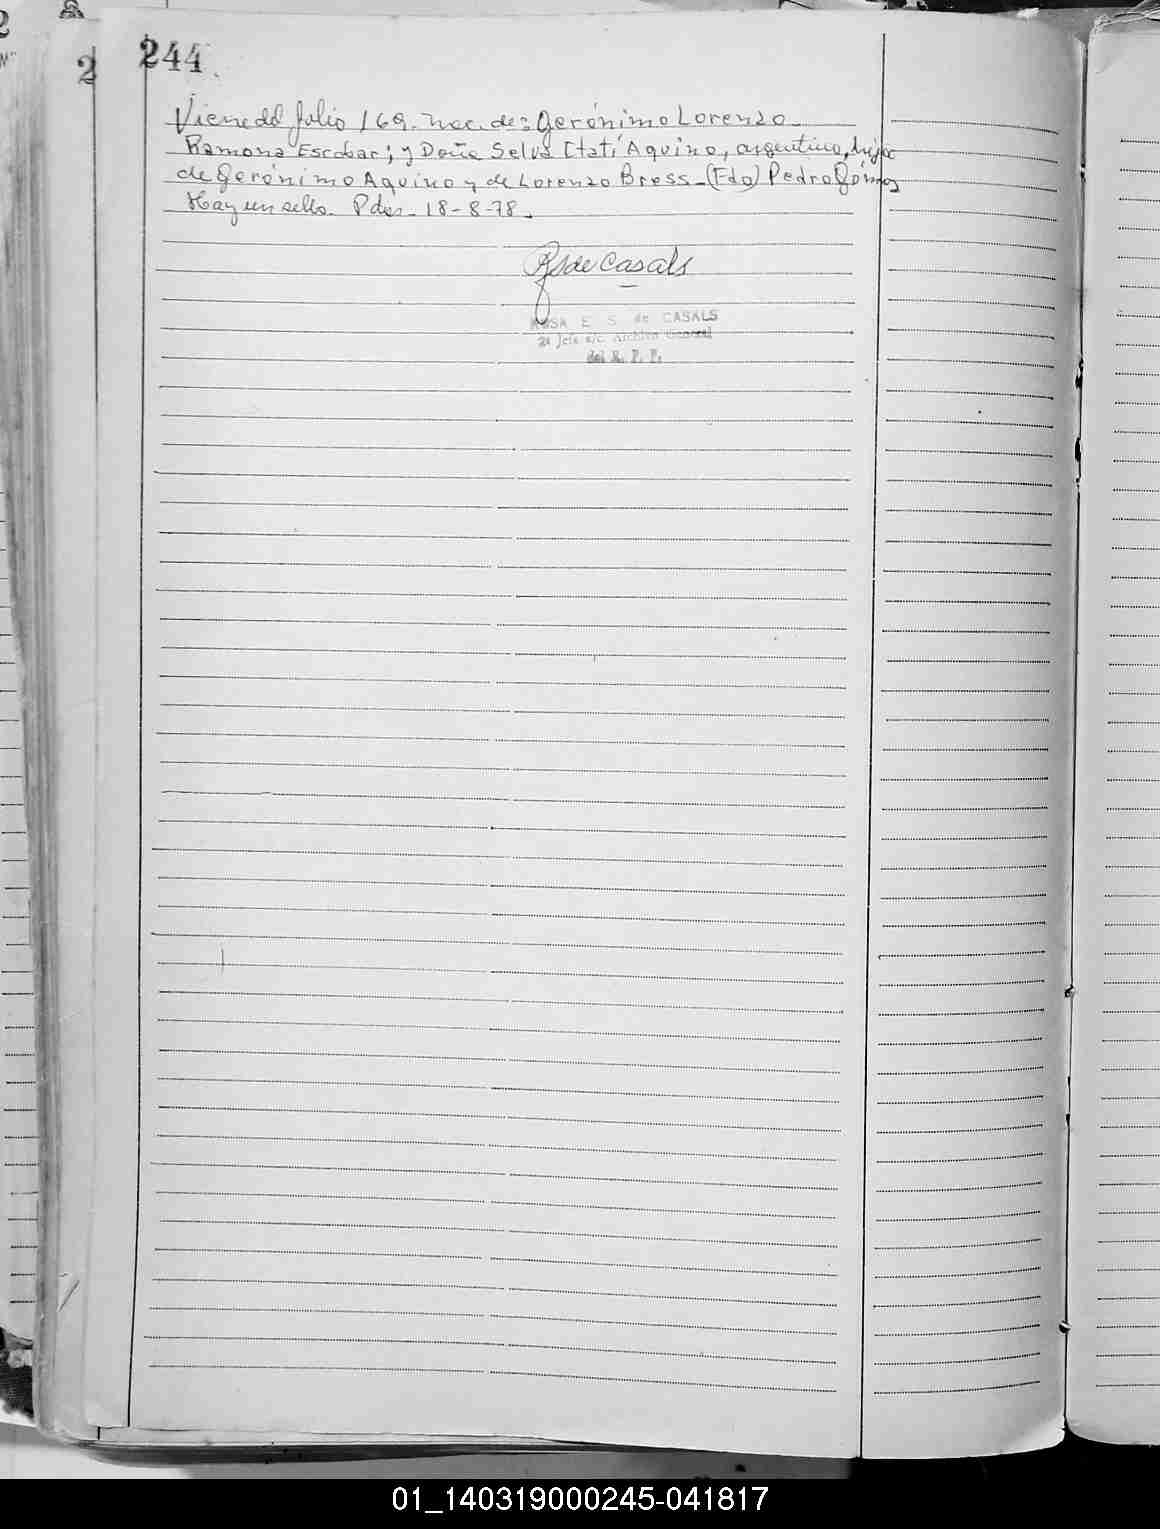 244
2
Viene del folio 169. Nac. de: Gerónimo Lorenzo
Ramona Escobar; y Doña Selva Itatí Aquino, argentina, hija
de Gerónimo Aquino y de Lorenzo Bress-(Fdo) Pedro Gómez
Hay un sello. Pdas- 18-8-78.
RSde Casals
ROSA E S de CASALS
2a Jefe a/c Archivo General
del R. P. P.
01_140319000245-041817